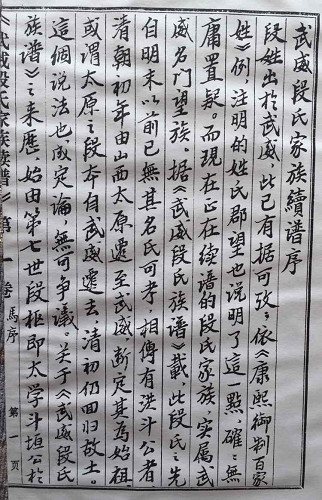 武威段氏家族續谱序
段姓出於武威，此已有据可攷；依《康熙御制百家
姓》例，注明的姓氏郡望也说明了這一點，確確無
庸置疑。而現在正在续谱的段氏家族，实属武
威名门望族。据《武威段氏族谱》載，此段氏之先
自明末以前已無其名氏可考，相傳有洪斗公者
清朝初年由山西太原遷至武威，断定其為始祖
或谓太原之段本自武威遷去，清初仍回归故土。
這個说法也成定論，無可争議。关于《武威段氏
族谱》之来歷，始由第七世段枢即太学斗垣公於
《武威段氏家族族谱》第一卷
馬序
第 页